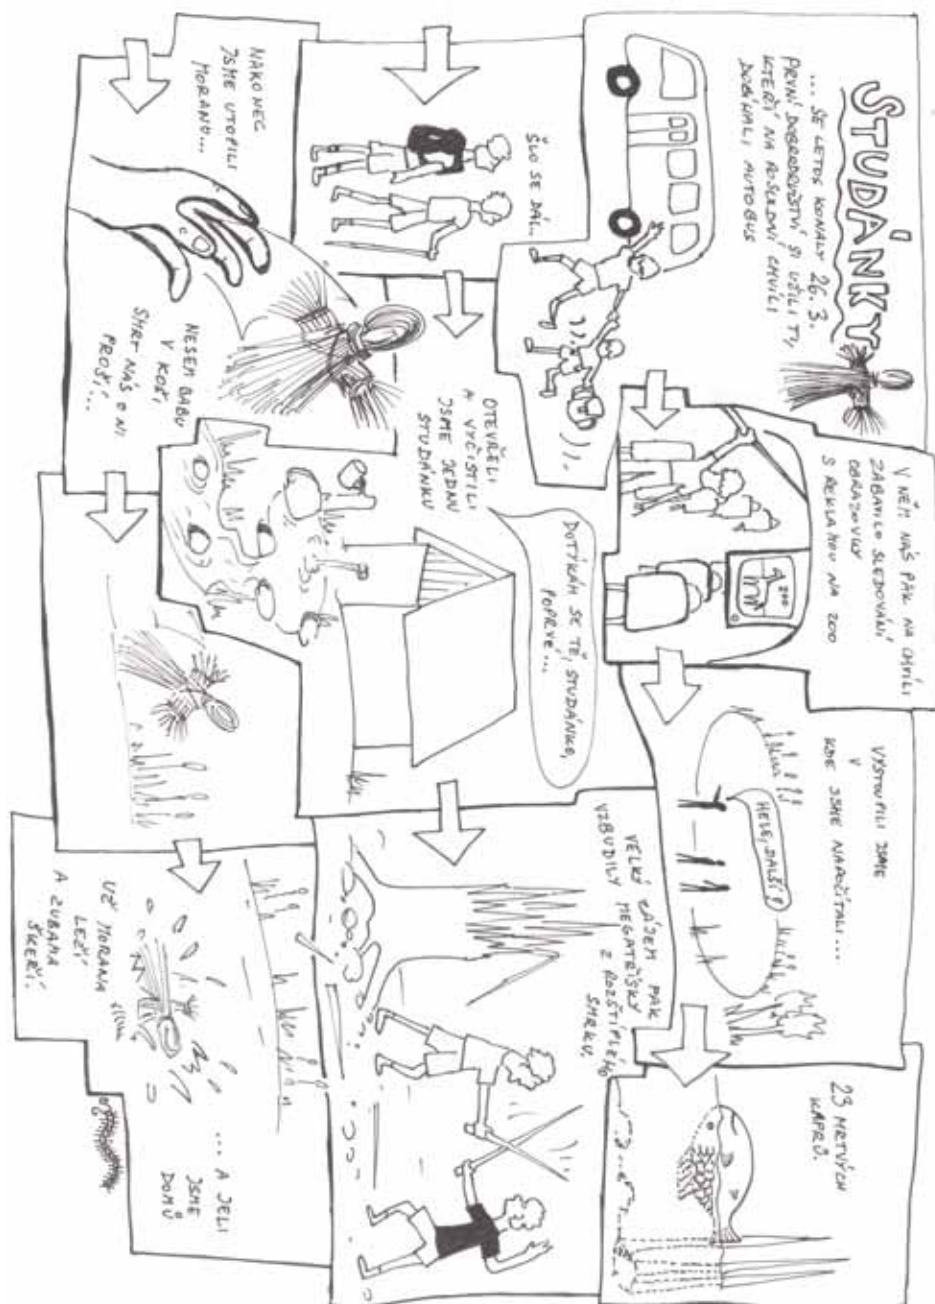 STUDÁNKY
... SE LETOS KONALY 26.3.
PRVNÍ DOBRODRUŽSTVÍ SI UŽILI TI,
KTEŘÍ NA POSLEDNÍ CHVÍLI
DOBÍHALI AUTOBUS
V NĚM NÁS PAK NA CHVÍLI
ZABAVILO SLEDOVÁNÍ
OBRAZOVKY
S REKLAMOU NA ZOO
ZOO
VYSTOUPILI JSME
V
KDE JSME NAPOČÍTALI...
HELE, DALŠÍ!
23 MRTVÝCH
KAPRŮ.
ŠLO SE DÁL..
OTEVŘELI
A VYČISTILI
JSME JEDNU
STUDÁNKU
DOTÝKÁM SE TĚ, STUDÁNKO,
POPRVÉ...
VELKÝ ZÁJEM PAK
VZBUDILY MEGATŘÍSKY
Z ROZŠTÍPLÉHO
SMRKU.
NAKONEC
JSME UTOPILI
MORANU...
NESEM BABU
V KOŠI,
SMRT NÁS O NI
PROSÍ...
UŽ MORANA
LEŽÍ
A ZUBAMA
ŠKEŘÍ.
... A JELI
JSME
DOMŮ